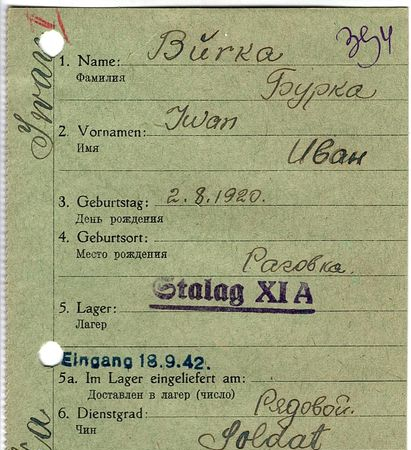 Iwan
1. Name: Burka
Фамилия
Бурка
2. Vornamen: Iwan
Имя
Иван
3. Geburtstag: 2.8.1920.
День рождения
4. Geburtsort:
Место рождения
Раговка.
Stalag XI A
5. Lager:
Лагер
Eingang 18.9.42.
5a. Im Lager eingeliefert am:
Доставлен в лагер (число)
6. Dienstgrad: Рядовой.
Чин
Soldat